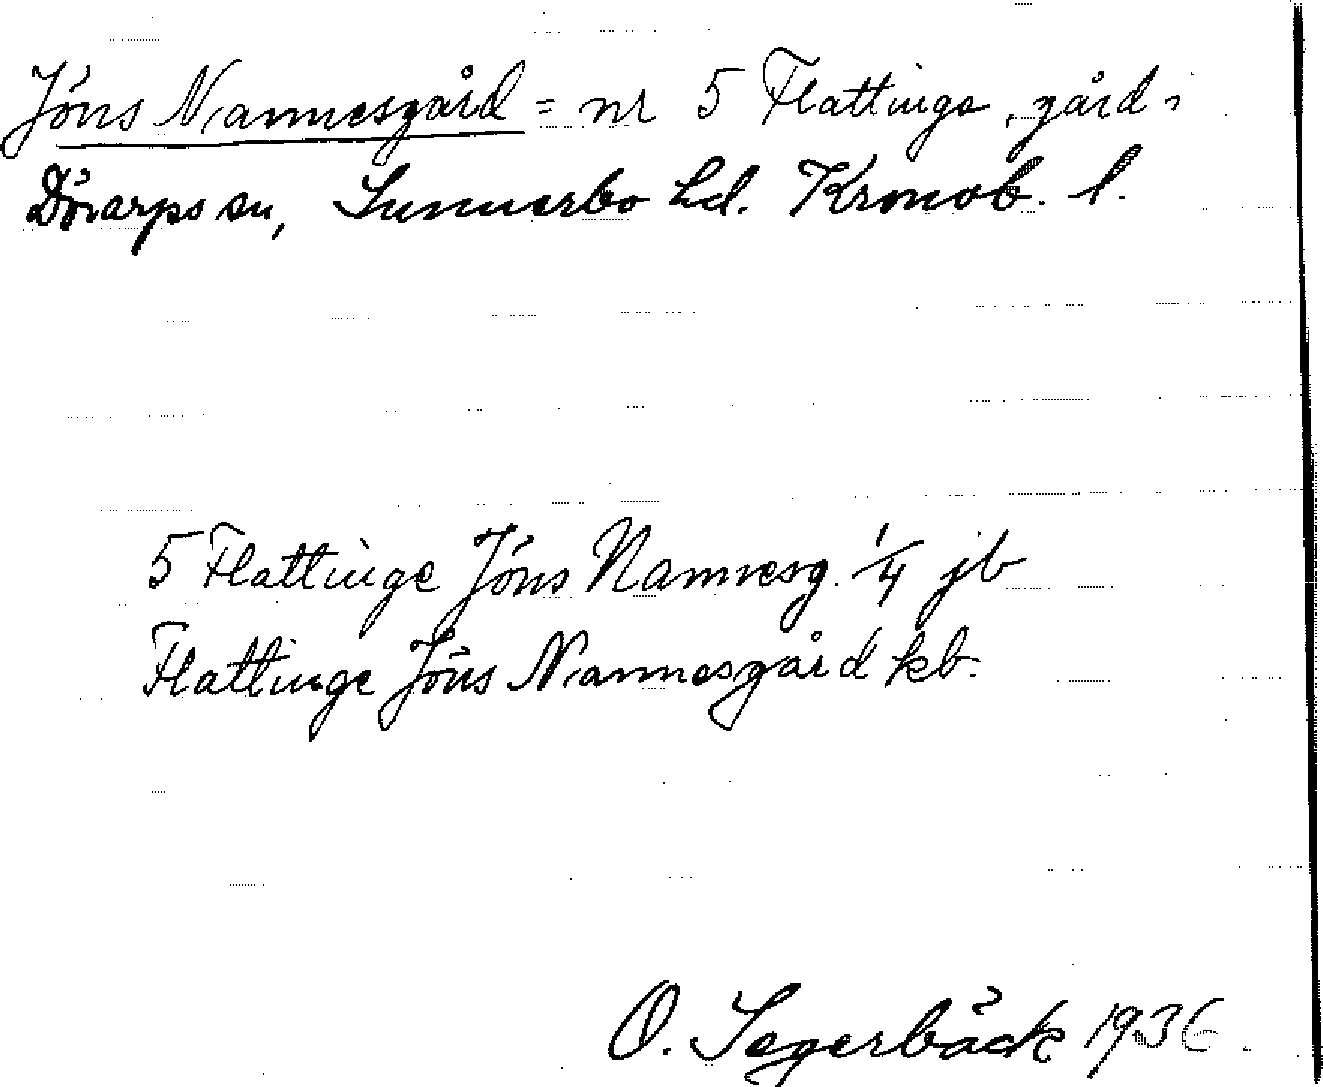 Jöns Nannesgård = nr 5 Flattinge, gård i
Dörarps sn, Sunnerbo hd. Kronob. l.
5 Flattinge Jöns Nannesg. 1/4 jb
Flattinge Jöns Nannesgård kb.
O. Segerbäck 1936.